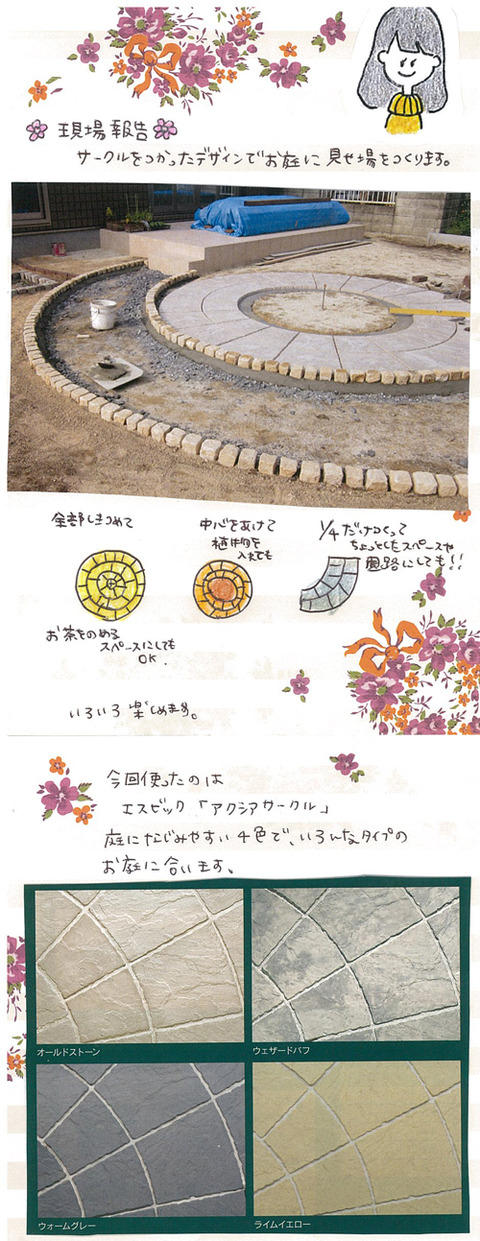 現場報告
サークルをつかったデザインでお庭に見せ場をつくります。
全部しきつめて
お茶をのめる
スペースにしても
OK.
中心をあけて
植物を
入れても
1/4だけつくって
ちょっとしたスペースや
園路にしても!!
いろいろ楽しめます。
今回使ったのは
エスビック「アクシアサークル」
庭になじみやすい4色で、いろんなタイプの
お庭に合います。
オールドストーン
ウェザードバフ
ウォームグレー
ライムイエロー